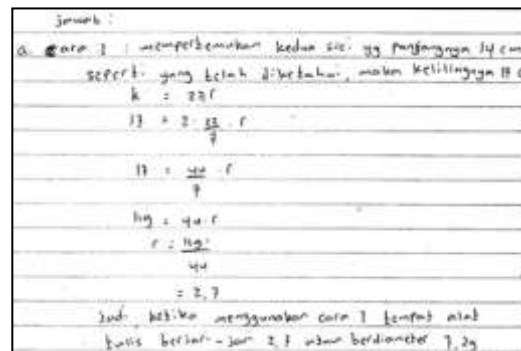 jawab :
a. cara 1 : mempertemukan kedua sisi yg panjangnya 14 cm
seperti yang telah diketahui, maka kelilingnya 17
k = 2πr
17 = 2 . 22/7 . r
17 = 44/7 r
119 = 44 . r
r = 119/44
= 2,7
Jadi ketika menggunakan cara 1 tempat alat
tulis berjari-jari 2,7 atau berdiameter